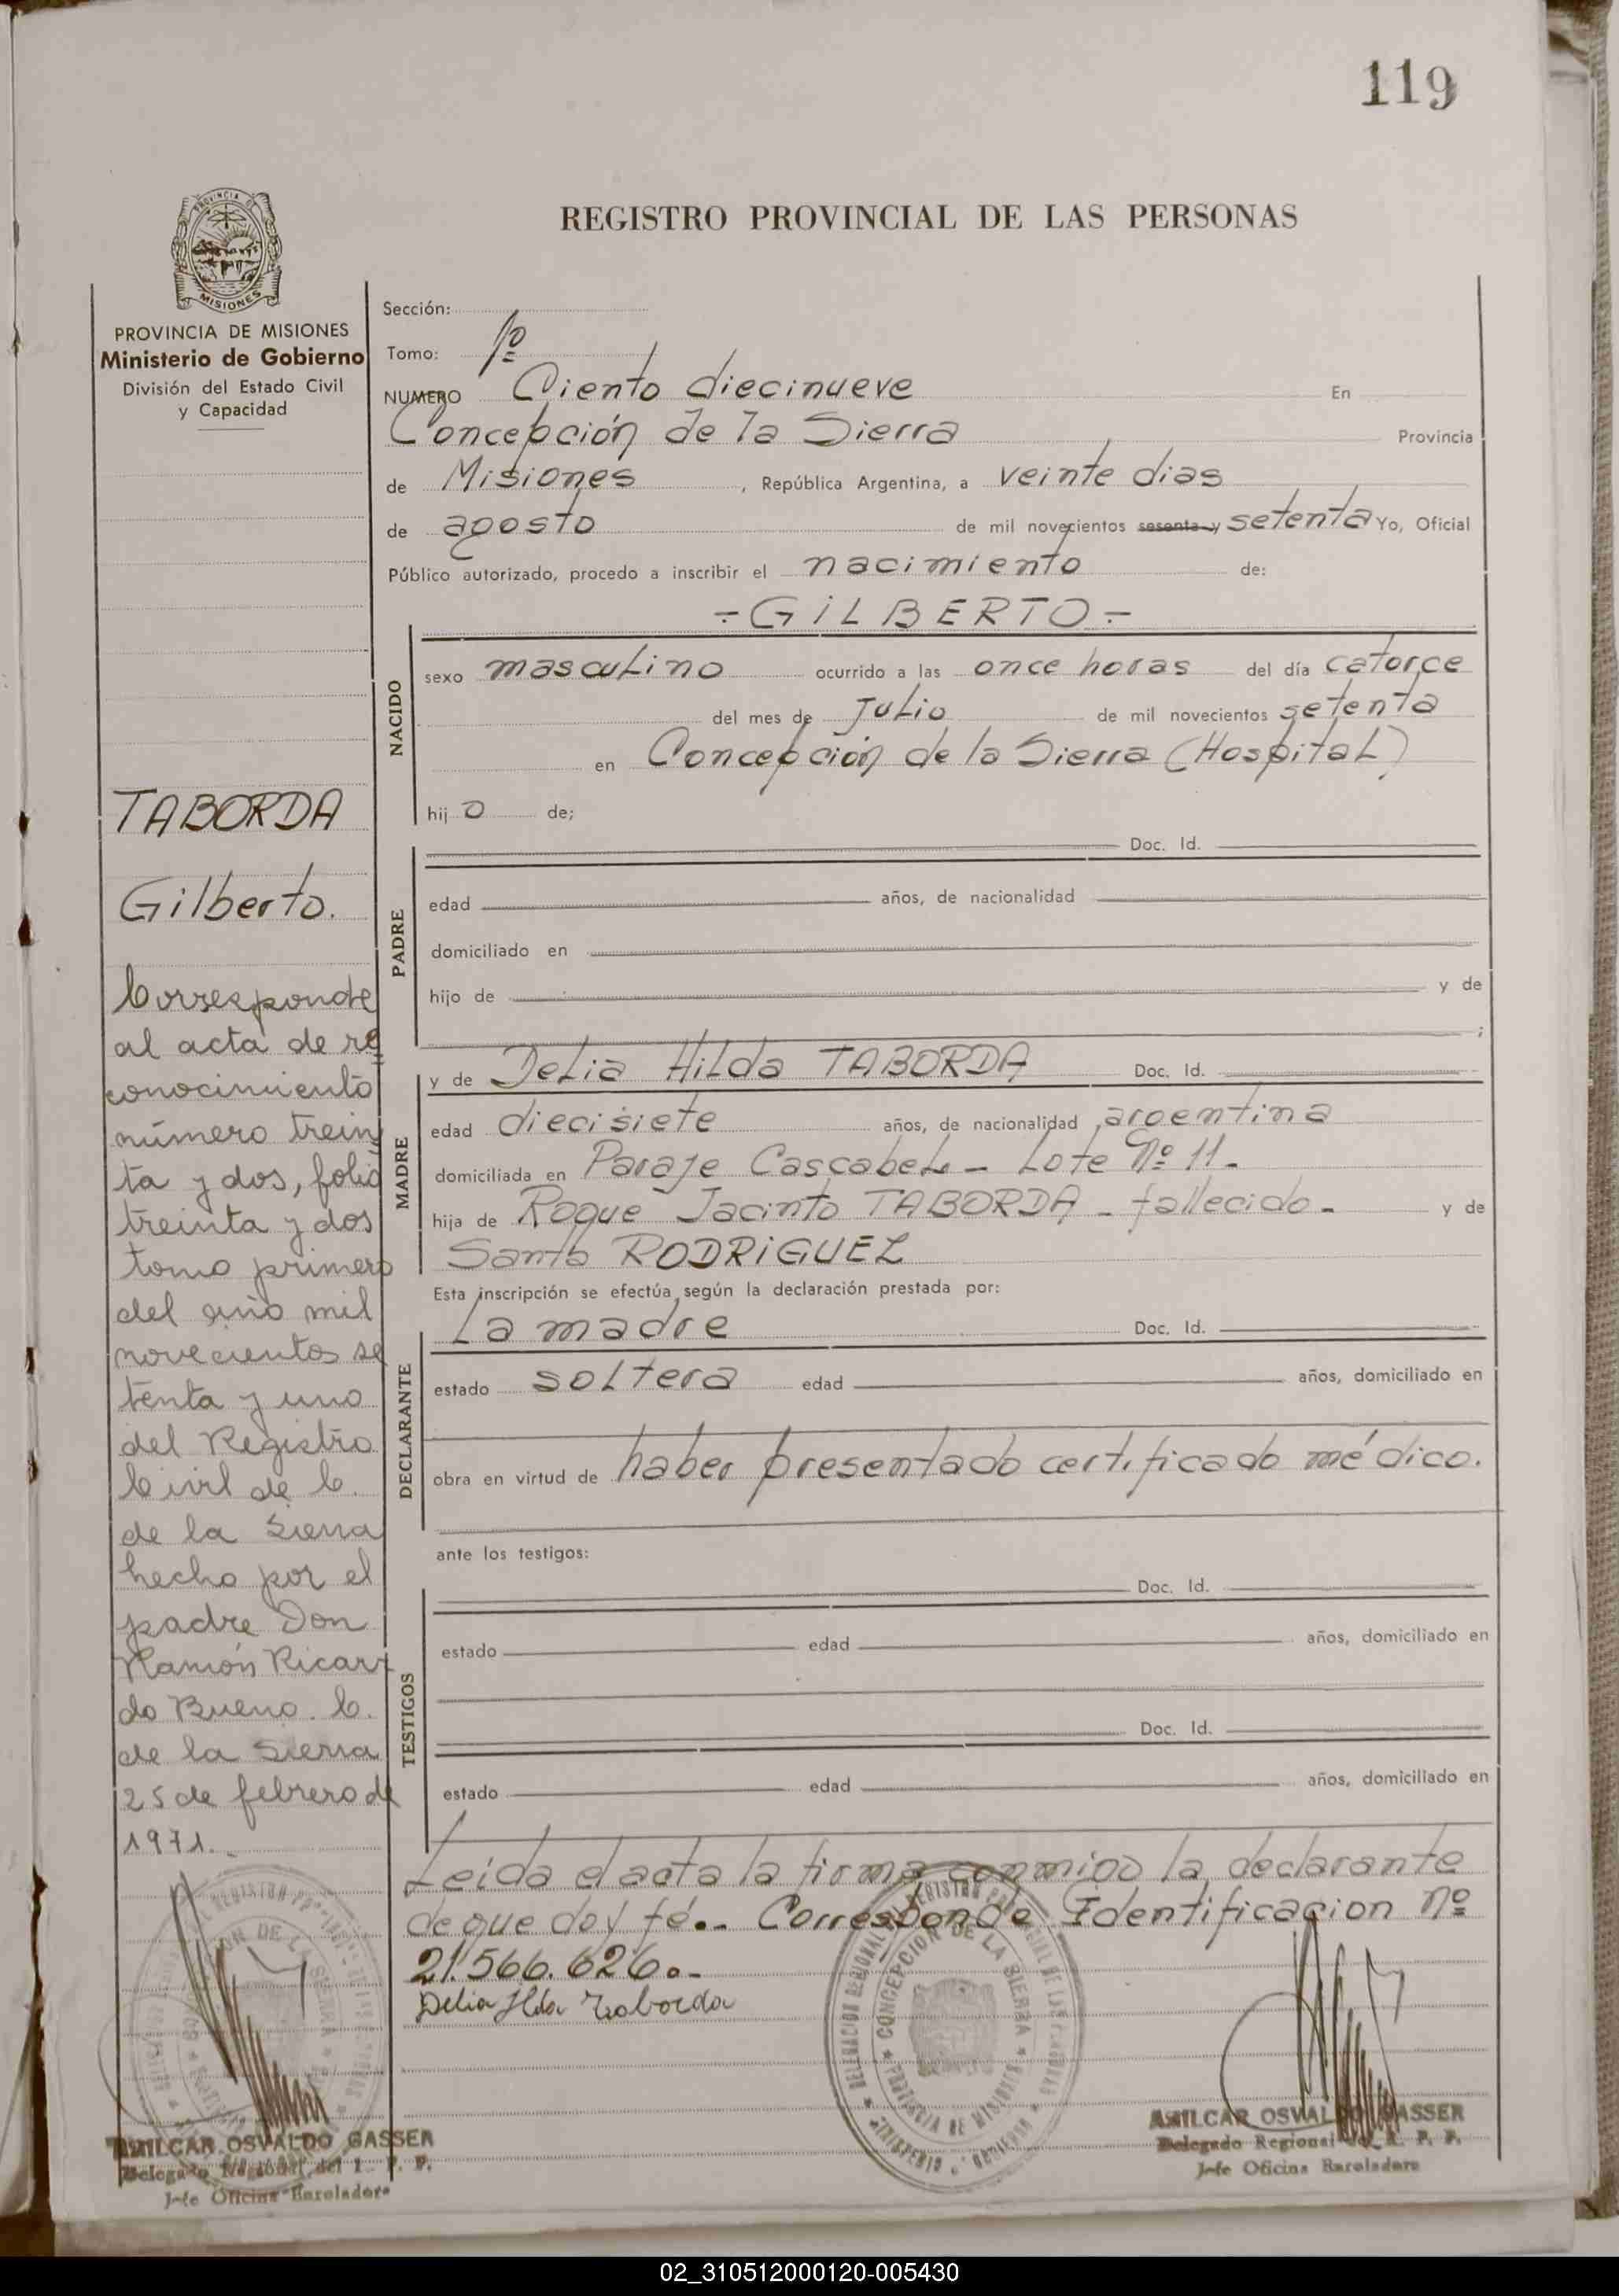 119
REGISTRO PROVINCIAL DE LAS PERSONAS
PROVINCIA DE
MISIONES
PROVINCIA DE MISIONES
Ministerio de Gobierno
División del Estado Civil
y Capacidad
TABORDA
Gilberto.
Corresponde
al acta de re
conocimiento
número trein
ta y dos, folio
treinta y dos
tomo primero
del año mil
novecientos se
tenta y uno
del Registro
Civil de C.
de la Sierra
hecho por el
padre Don
Ramón Ricar
do Bueno. C.
de la Sierra
25 de febrero de
1971.
AMILCAR OSVALDO GASSER
Delegado Regional del R. P. P.
Jefe Oficina Enroladora
Sección:
Tomo: 1º
NUMERO Ciento diecinueve En
Concepción de la Sierra Provincia
de Misiones, República Argentina, a veinte dias
de agosto de mil novecientos sesenta y setenta Yo, Oficial
Público autorizado, procedo a inscribir el nacimiento de:
-GILBERTO-
NACIDO
sexo masculino ocurrido a las once horas del día catorce
del mes de Julio de mil novecientos setenta
en Concepción de la Sierra (Hospital)
hijo de;
PADRE
Doc. Id.
edad años, de nacionalidad
domiciliado en
hijo de y de
;
MADRE
y de Delia Hilda TABORDA Doc. Id.
edad diecisiete años, de nacionalidad argentina
domiciliada en Paraje Cascabel - Lote Nº 11.-
hija de Roque Jacinto TABORDA - fallecido - y de
Santa RODRIGUEZ
Esta inscripción se efectúa según la declaración prestada por:
DECLARANTE
La madre Doc. Id.
estado soltera edad años, domiciliado en
obra en virtud de haber presentado certificado médico.
ante los testigos:
TESTIGOS
Doc. Id.
estado edad años, domiciliado en
Doc. Id.
estado edad años, domiciliado en
Leida el acta la firma conmigo la declarante
de que doy fé.- Corresponde Identificacion Nº
21.566.626.-
Delia Ilda Taborda
CONCEPCION DE LA SIERRA
PROVINCIA DE MISIONES
AMILCAR OSVALDO GASSER
Delegado Regional del R. P. P.
Jefe Oficina Enroladora
02_310512000120-005430